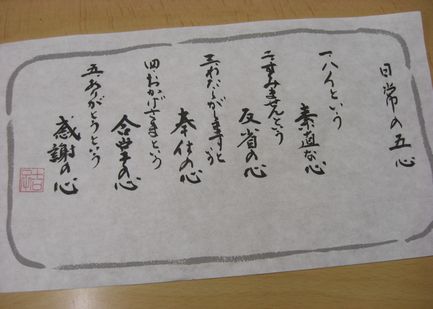 日常の五心
一、ハイという
素直な心
二、すみませんという
反省の心
三、わたしがしますという
奉仕の心
四、おかげさまという
合掌の心
五、ありがとうという
感謝の心